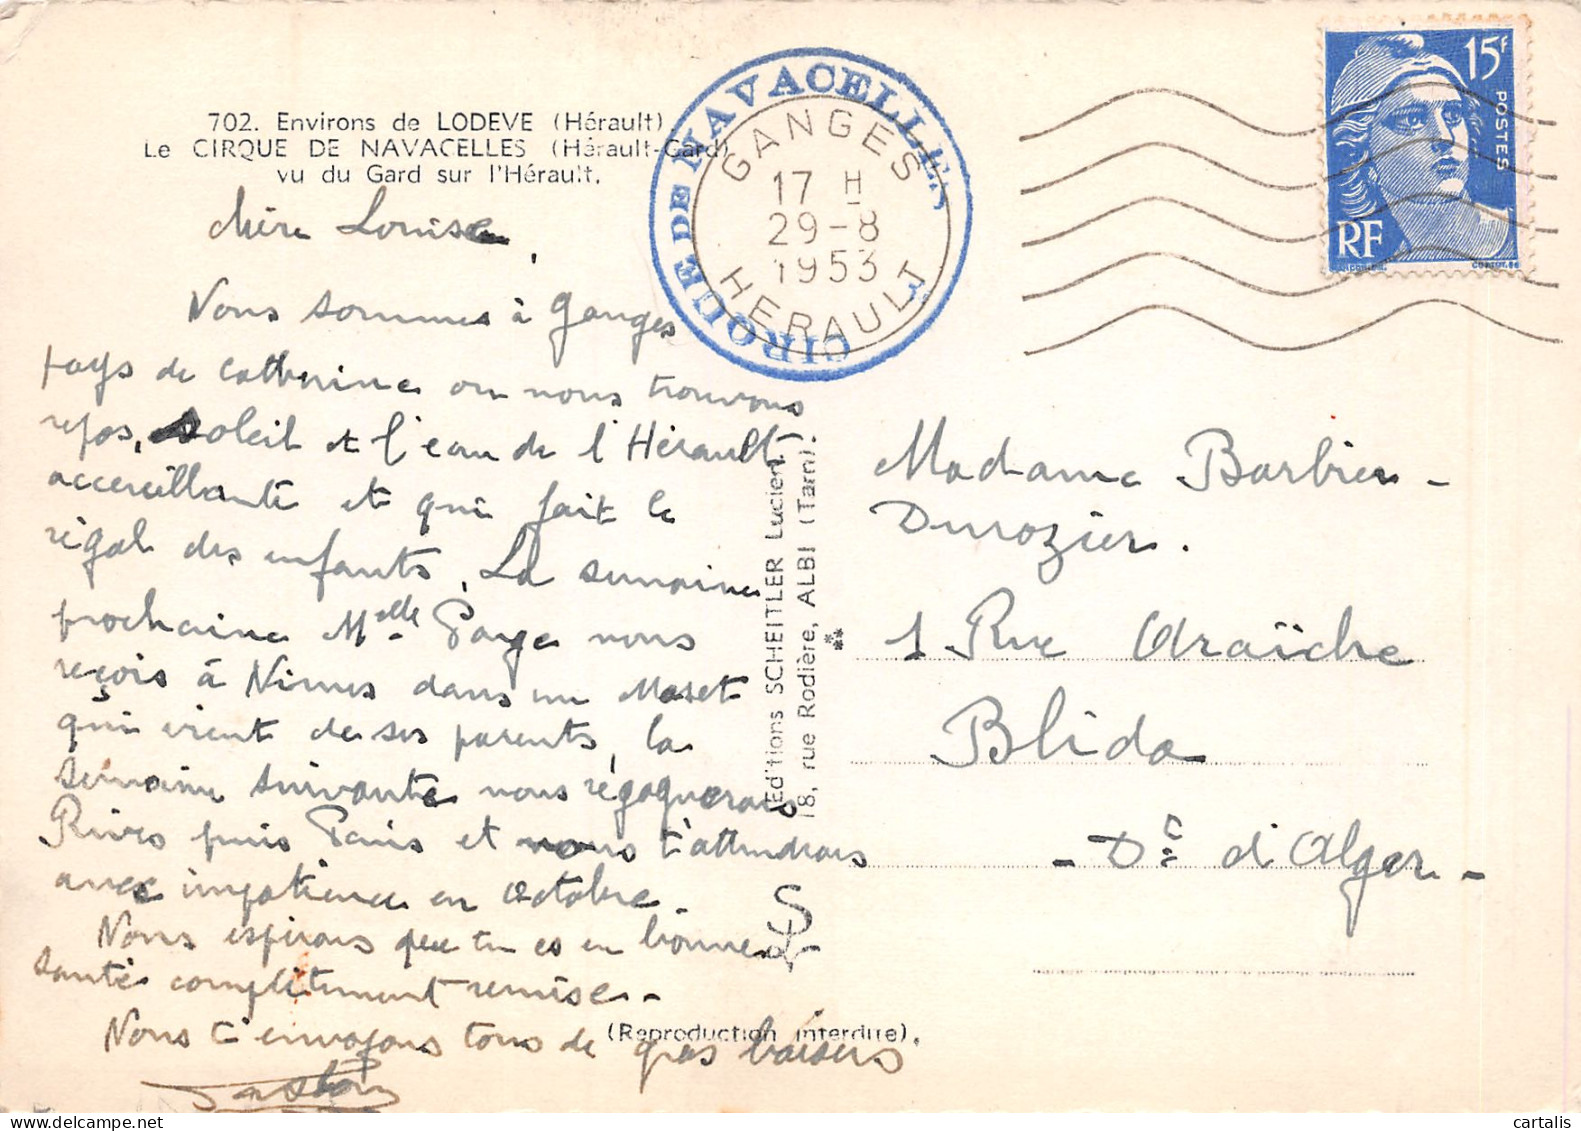 702. Environs de LODEVE (Hérault)
Le CIRQUE DE NAVACELLES (Hérault-Gard)
vu du Gard sur l'Hérault.
CIRQUE DE NAVACELLES
GANGES
17 H
29-8
1953
HERAULT
15F
POSTES
RF
chère Louise,
Nous sommes à Ganges
pays de Catherine ou nous trouvons
repos, soleil et l'eau de l'Hérault
accueillante et qui fait le
régal des enfants. La semaine
prochaine Melle Page nous
reçois à Nimes dans un Maset
qui vient de ses parents, la
semaine suivante nous régagnerons
Rives puis Paris et nous t'attendrons
avec impatience en Octobre.
Nous espérons que tu es en bonne
santé complètement remise.
Nous t'envoyons tous de gros baisers
Madame Barbier-
Durozier.
1 Rue Araïche
Blida
- Dt d'Alger -
Editions SCHEITLER Lucien.
18, rue Rodière, ALBI (Tarn).
(Reproduction interdite).
cartalis